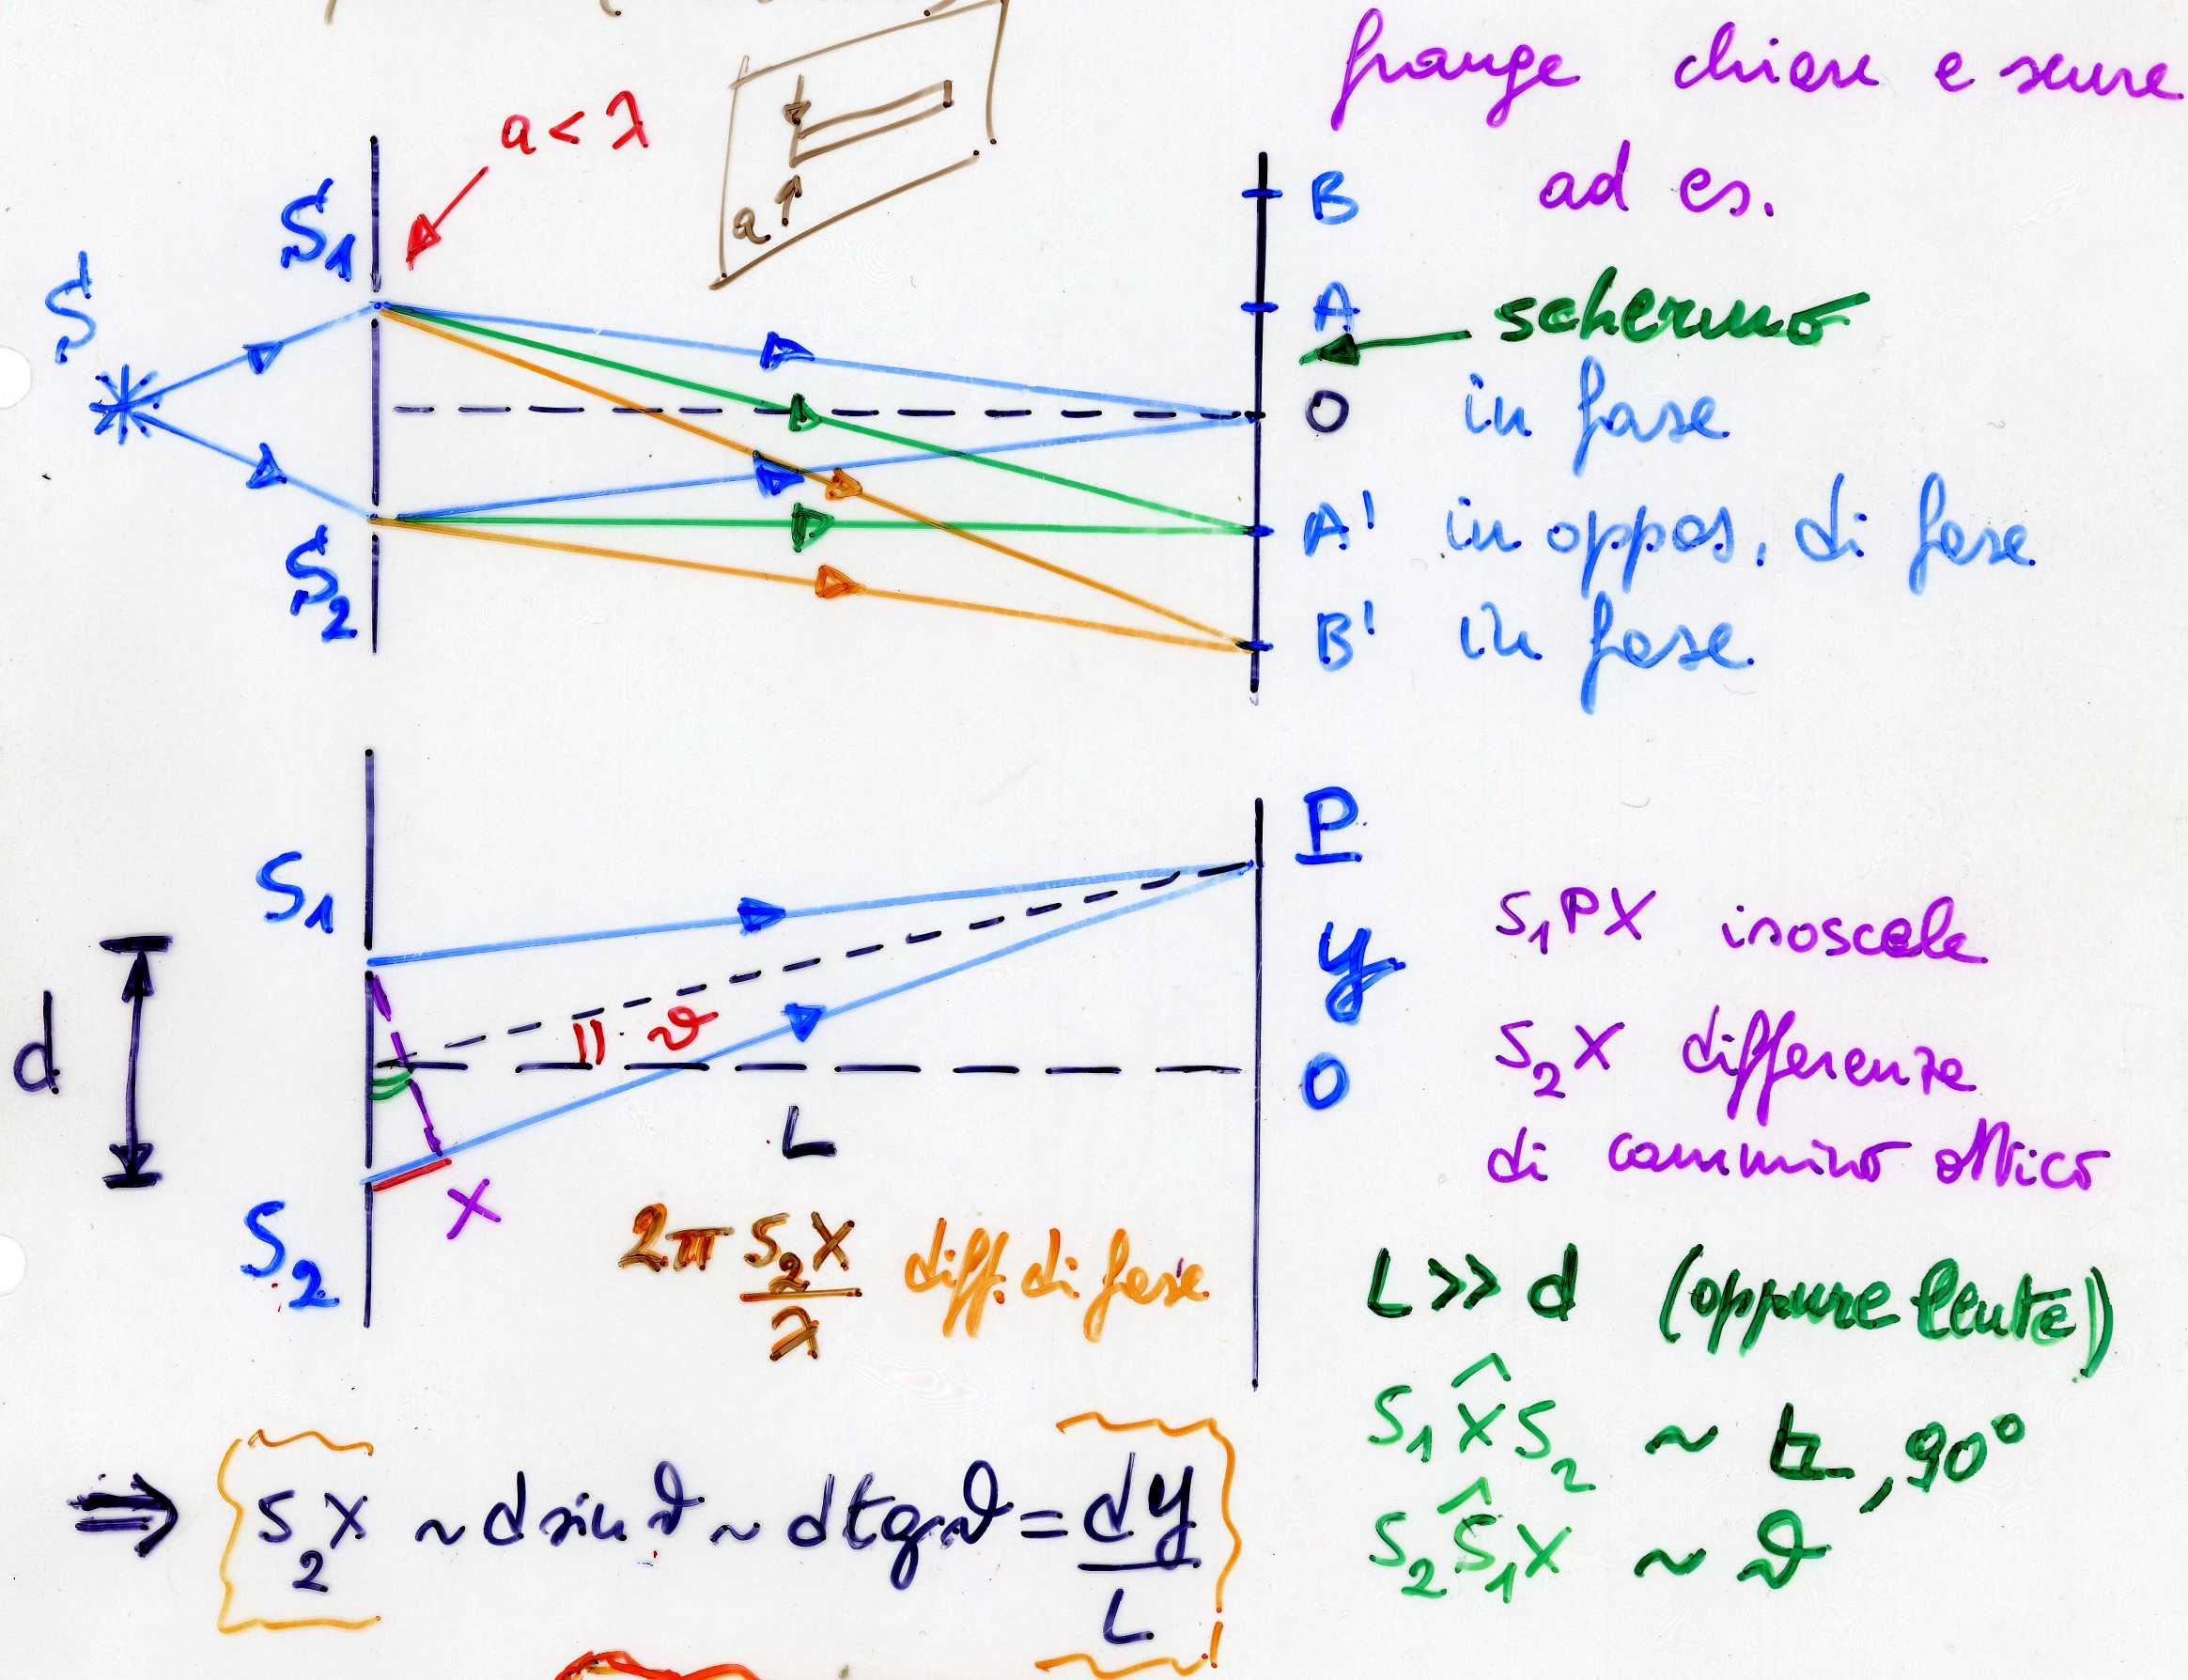 frange chiare e scure
a < λ
ad es.
a
S
S₁
S₂
B
A
schermo
O in fase
A' in oppos. di fase
B' in fase
P
S₁
y
S₁PX isoscele
d
ϑ
O
S₂X differenza
L
di cammino ottico
X
S₂
2π S₂X/λ diff. di fase
L >> d (oppure lente)
S₁X̂S₂ ~ , 90°
S₂Ŝ₁X ~ ϑ
⇒ S₂X ~ d sin ϑ ~ d tg ϑ = dy/L